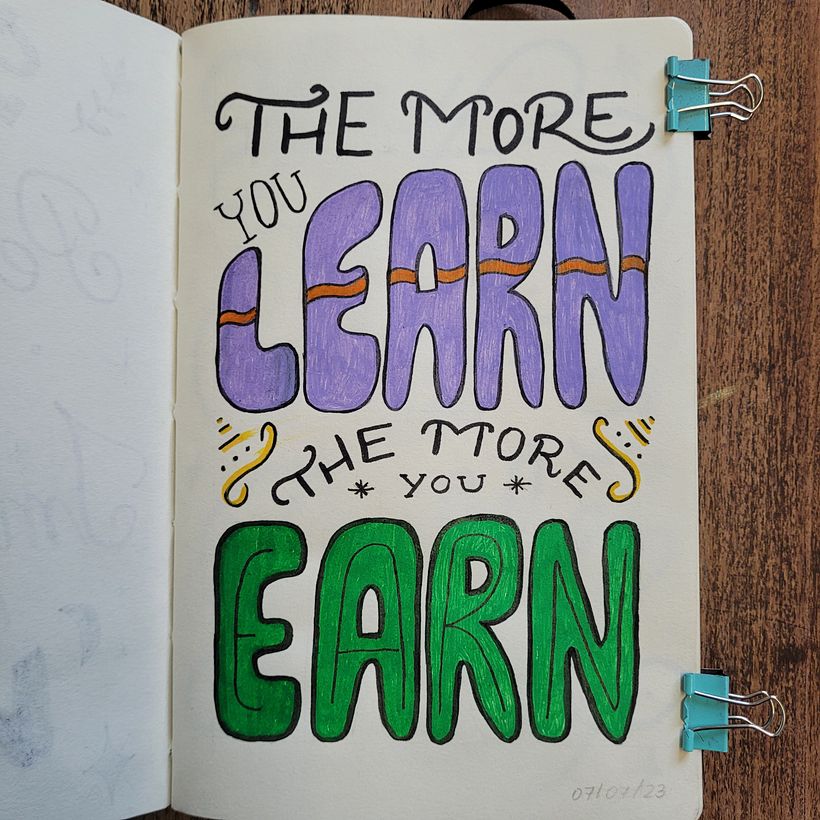 THE MORE
YOU
LEARN
THE MORE
* YOU *
EARN
07/07/23